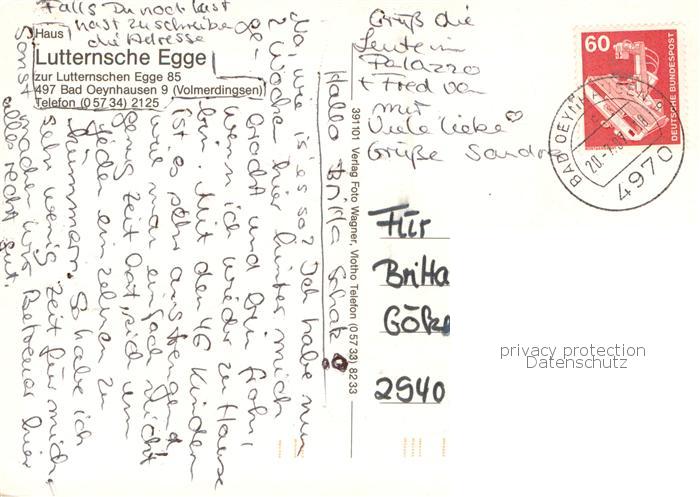 Falls Du noch Lust
hast zu schreiben
die Adresse
Haus
Lutternsche Egge
zur Lutternschen Egge 85
497 Bad Oeynhausen 9 (Volmerdingsen)
Telefon (0 57 34) 2125
Hallo Britta Schatz
Na, wie is' es so? Ich habe nun
2 Wochen hier hinter mich
gebracht und bin froh,
wenn ich wieder zu Hause
bin. Mit den 46 Kindern
ist es sehr anstrengend
wie man einfach nicht
genug Zeit hat, sich um
jeden einzelnen zu
kümmern. So habe ich
sehr wenig Zeit für mich.
Sonst machen wir Betreuer hier
alles recht gut.
391101 Verlag Foto Wagner, Vlotho Telefon (0 57 33) 82 33
Gruß die
Leute im
Palazzo
+ Fred von
mir
Viele liebe
Grüße Sandra
60
DEUTSCHE BUNDESPOST
BAD OEYNHAUSEN
4970
Für
Britta
2940
privacy protection
Datenschutz